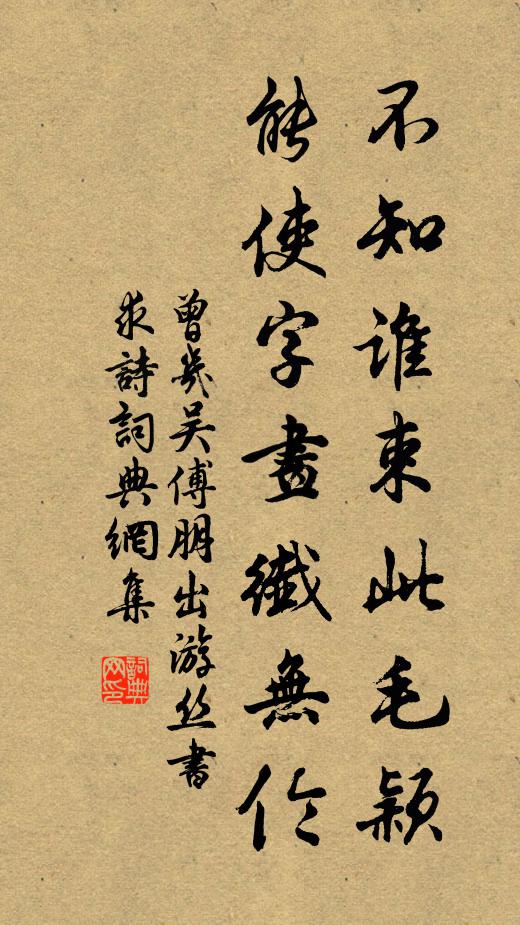 不知誰束此毛穎
能使字畫纖無倫
曾幾吴傅朋出游丝書
求詩詞典網集
詞典网印